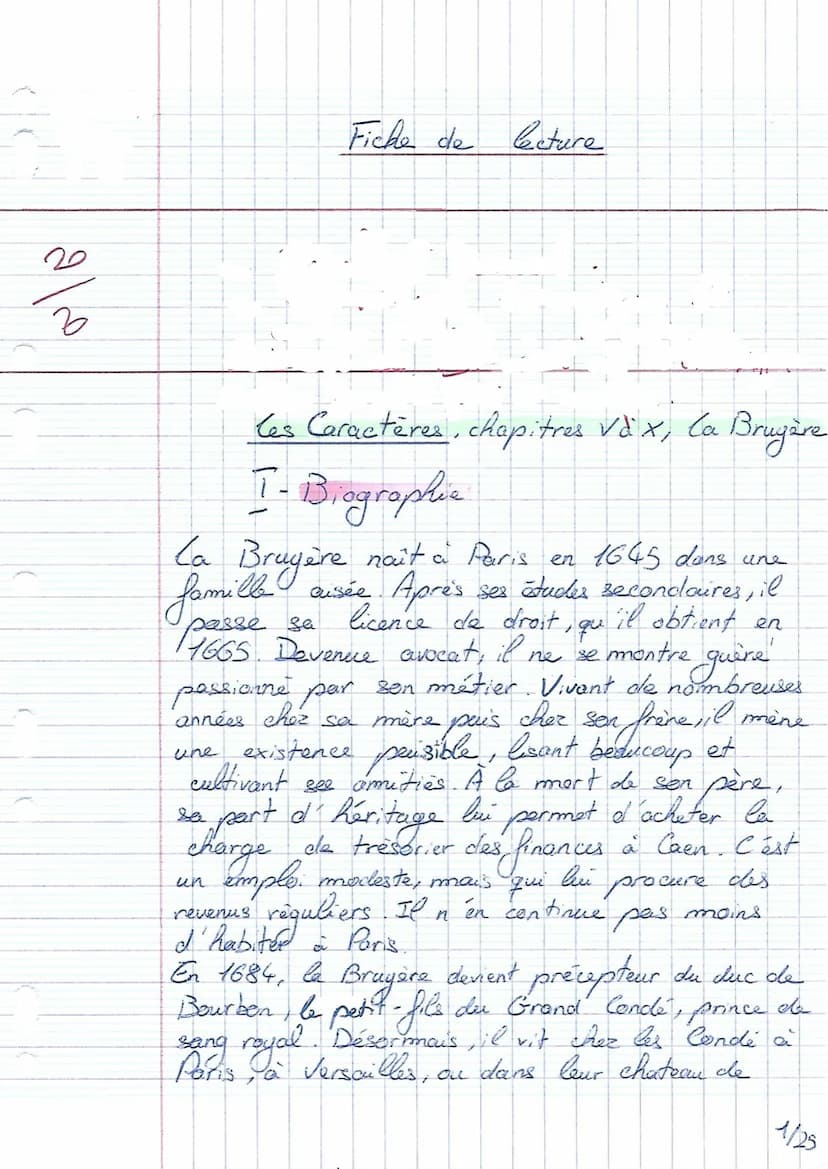 Fiche de lecture
20
/
20
Les Caractères, chapitres V à X, La Bruyère
I - Biographie
La Bruyère naît à Paris en 1645 dans une
famille aisée. Après ses études secondaires, il
passe sa licence de droit, qu'il obtient en
1665. Devenue avocat, il ne se montre guère
passionné par son métier. Vivant de nombreuses
années chez sa mère puis chez son frère, il mène
une existence paisible, lisant beaucoup et
cultivant ses amitiés. À la mort de son père,
sa part d'héritage lui permet d'acheter la
charge de trésorier des finances à Caen. C'est
un emploi modeste, mais qui lui procure des
revenus réguliers. Il n'en continue pas moins
d'habiter à Paris.
En 1684, la Bruyère devient précepteur du duc de
Bourbon, le petit-fils du Grand Condé, prince de
sang royal. Désormais, il vit chez les Condé à
Paris, à Versailles, ou dans leur chateau de
1/29